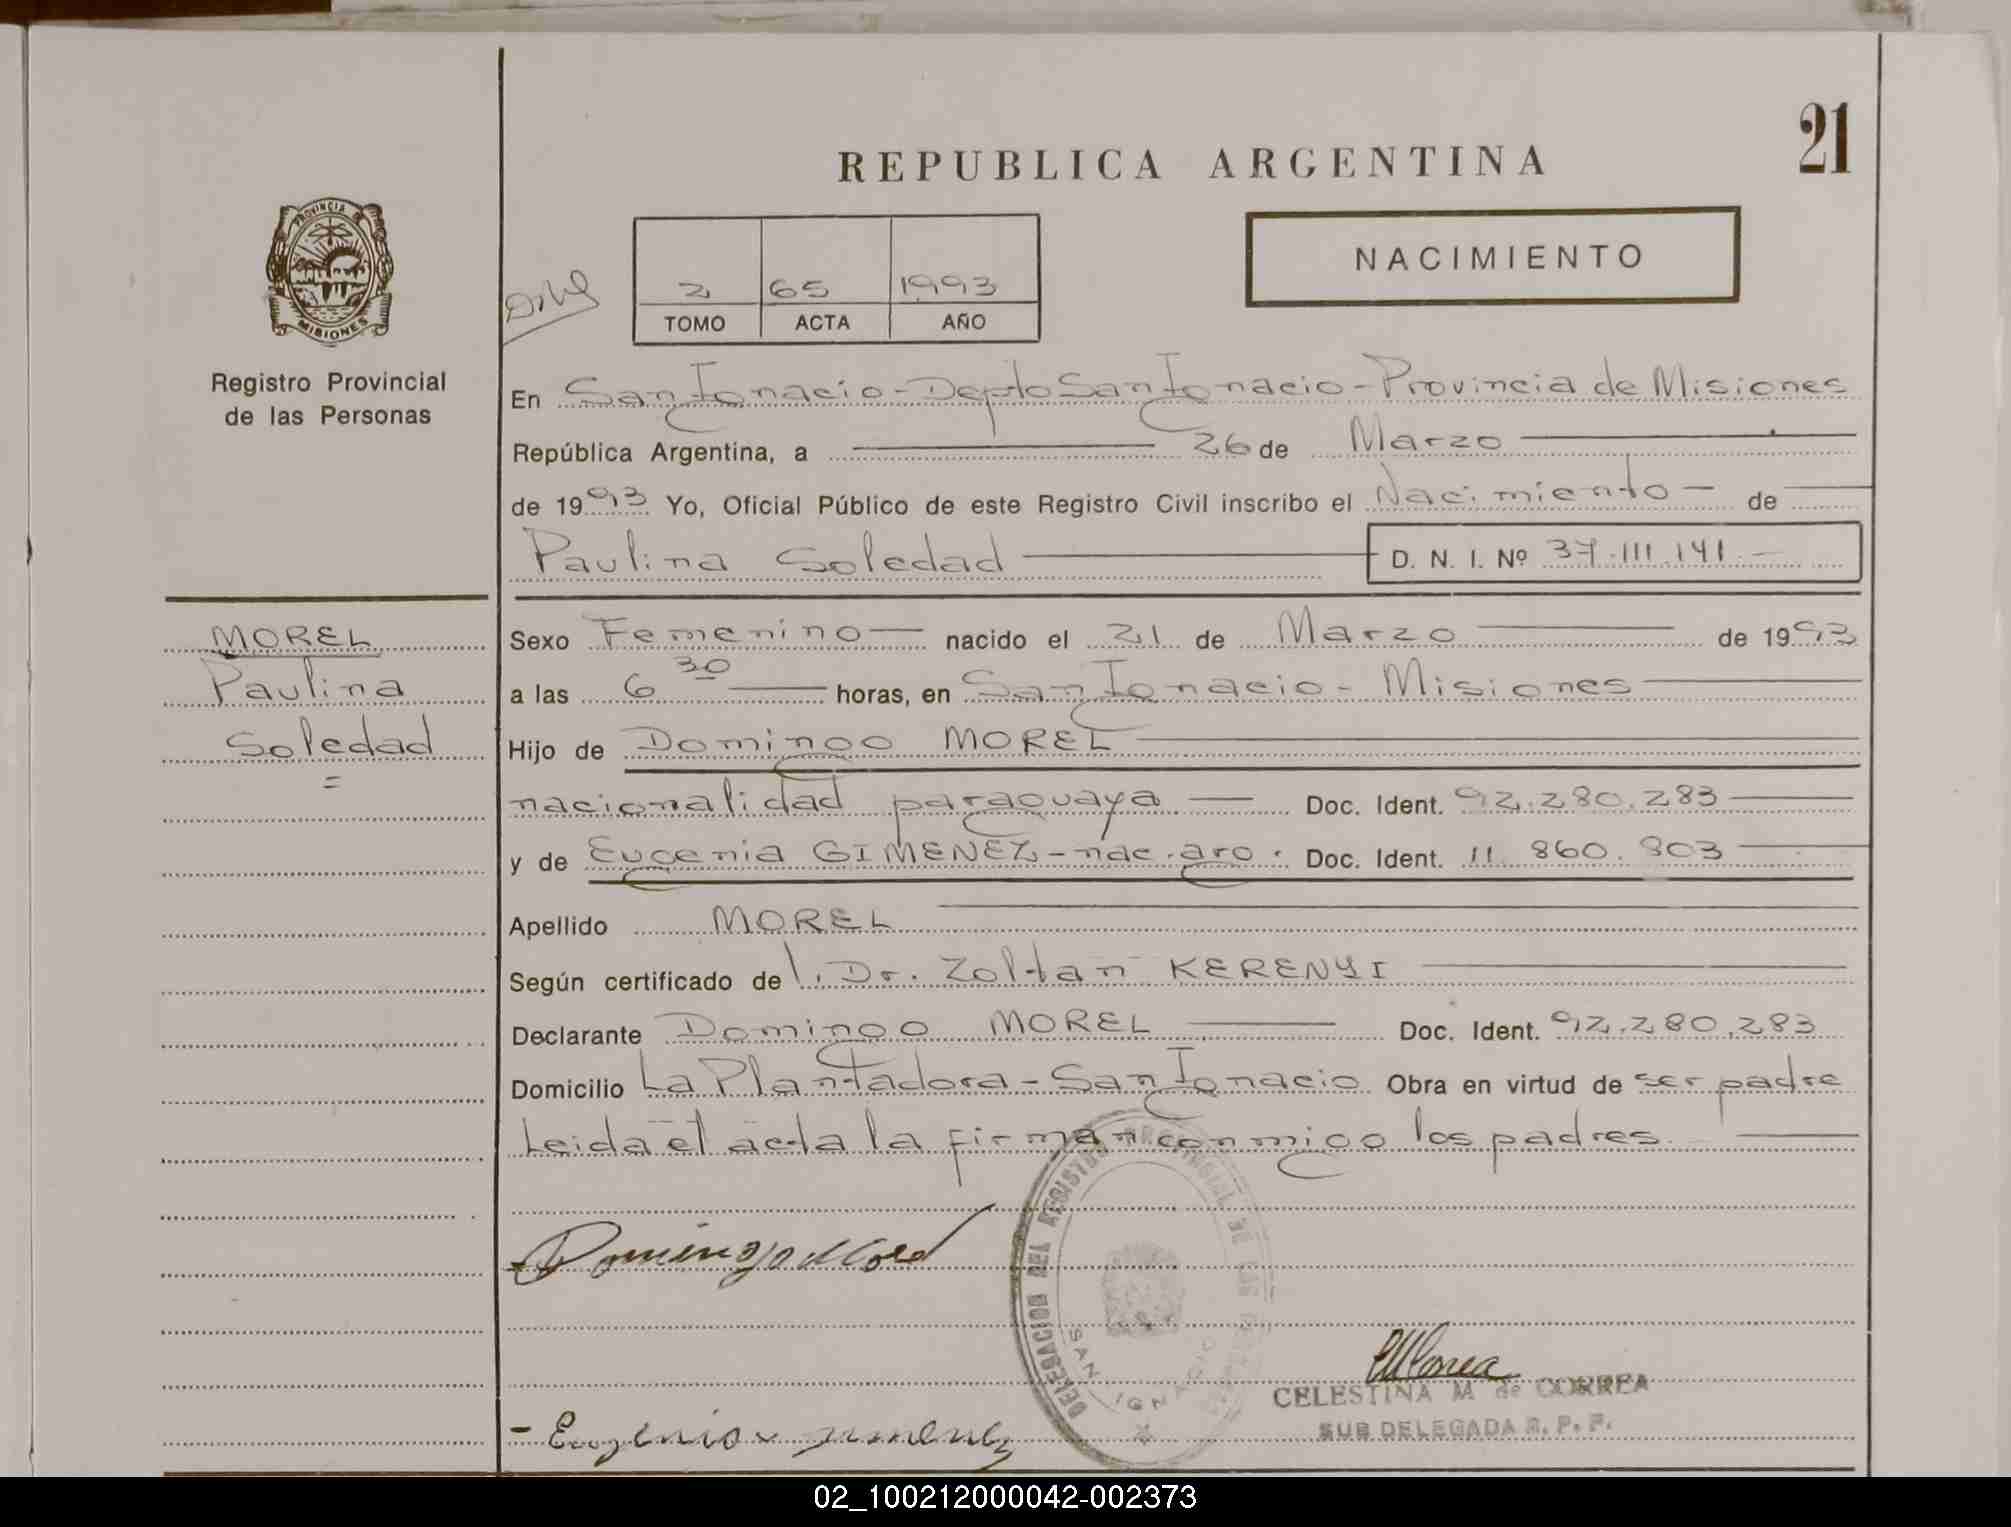 21
REPUBLICA ARGENTINA
PROVINCIA DE
MISIONES
Registro Provincial
de las Personas
2 65 1993
TOMO ACTA AÑO
NACIMIENTO
En San Ignacio - Depto San Ignacio - Provincia de Misiones
República Argentina, a 26 de Marzo
de 1993 Yo, Oficial Público de este Registro Civil inscribo el Nacimiento - de
Paulina Soledad D. N. I. Nº 37.111.141 -
MOREL
Paulina
Soledad
=
Sexo Femenino nacido el 21 de Marzo de 1993
a las 6 30 horas, en San Ignacio - Misiones
Hijo de Domingo MOREL
nacionalidad paraguaya Doc. Ident. 92.280.283
y de Eugenia GIMENEZ - nac. arg. Doc. Ident. 11.860.803
Apellido MOREL
Según certificado de l. Dr. Zoltan KERENYI
Declarante Domingo MOREL Doc. Ident. 92.280.283
Domicilio La Plantadora - San Ignacio Obra en virtud de ser padre
Leida el acta la firman conmigo los padres.
DELEGACION DEL REGISTRO PROVINCIAL DE LAS
SAN IGNACIO
Domingo Morel
CELESTINA M de CORREA
SUB DELEGADA R. P. P.
- Eugenia Jimenez
02_100212000042-002373